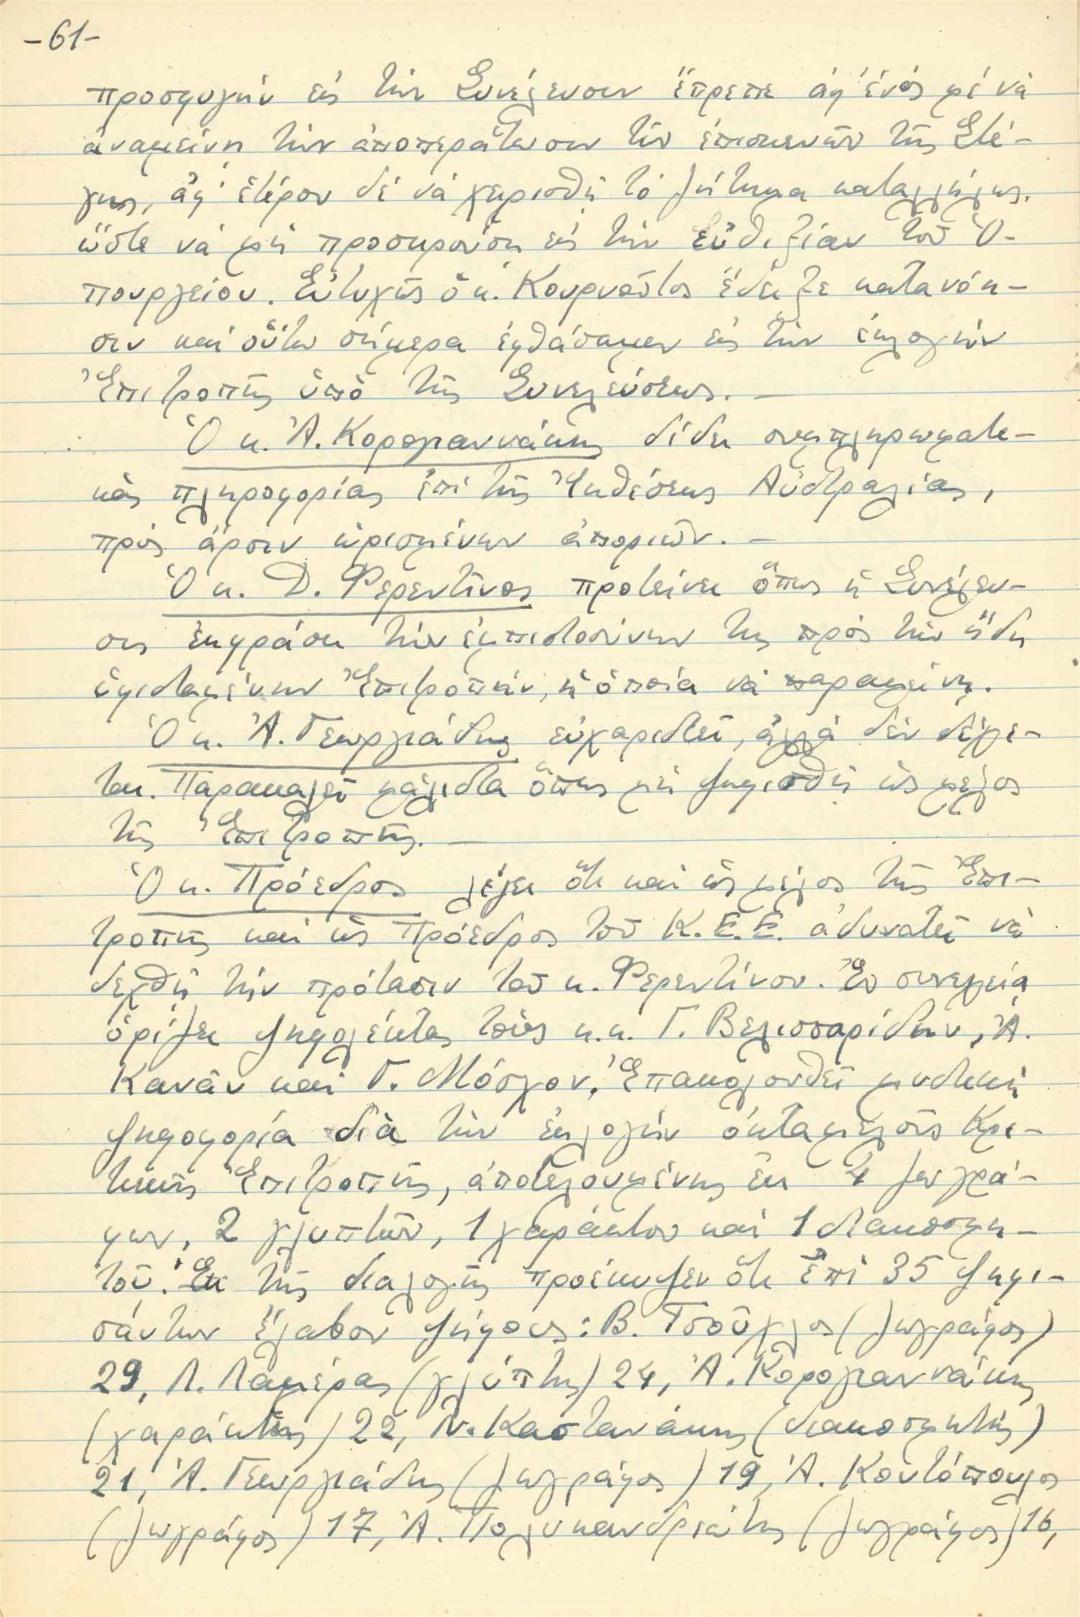 -61-
προσφυγήν εἰς τήν Συνέλευσιν ἔπρεπε ἀφ' ἑνός μέ νά
ἀναμείνῃ τήν ἀποπεράτωσιν τῶν ἐπισκευῶν τῆς Στέ-
γης, ἀφ' ἑτέρου δέ νά χειρισθῇ τό ζήτημα καταλλήλως,
ὥστε νά μή προσκρούσῃ εἰς τήν εὐθιξίαν τοῦ Ὑ-
πουργείου. Εὐτυχῶς ὁ κ. Κουρνοῦτος ἔδειξε κατανόη-
σιν καί οὕτω σήμερα ἐφθάσαμεν εἰς τήν ἐκλογήν
Ἐπιτροπῆς ὑπό τῆς Συνελεύσεως.-
Ὁ κ. Ἀ. Κορογιαννάκης δίδει συμπληρωματι-
κάς πληροφορίας ἐπί τῆς Ἐκθέσεως Αὐστραλίας,
πρός ἄρσιν ὡρισμένων ἀποριῶν.-
Ὁ κ. Δ. Φερεντῖνος προτείνει ὅπως ἡ Συνέλευ-
σις ἐκφράσῃ τήν ἐμπιστοσύνην της πρός τήν ἤδη
ὑφισταμένην Ἐπιτροπήν, ἡ ὁποία νά παραμείνῃ.
Ὁ κ. Ἀ. Γεωργιάδης εὐχαριστεῖ, ἀλλά δέν δέχε-
ται. Παρακαλεῖ μάλιστα ὅπως μή ψηφισθῇ ὡς μέλος
τῆς Ἐπιτροπῆς.-
Ὁ κ. Πρόεδρος λέγει ὅτι καί ὡς μέλος τῆς Ἐπι-
τροπῆς καί ὡς Πρόεδρος τοῦ Κ.Ε.Ε. ἀδυνατεῖ νά
δεχθῇ τήν πρότασιν τοῦ κ. Φερεντίνου. Ἐν συνεχείᾳ
ὁρίζει ψηφολέκτας τούς κ.κ. Γ. Βελισσαρίδην, Ἀ.
Κανᾶν καί Γ. Μόσχον. Ἐπακολουθεῖ μυστική
ψηφοφορία διά τήν ἐκλογήν ὀκταμελοῦς Κρι-
τικῆς Ἐπιτροπῆς, ἀποτελουμένης ἐκ 4 ζωγρά-
φων, 2 γλυπτῶν, 1 χαράκτου καί 1 διακοσμη-
τοῦ. Ἐκ τῆς διαλογῆς προέκυψεν ὅτι ἐπί 35 ψηφι-
σάντων ἔλαβον ψήφους: Β. Τσοῦχλος (ζωγράφος)
29, Λ. Λαμέρας (γλύπτης) 24, Ἀ. Κορογιαννάκης
(χαράκτης) 22, Ν. Καστανάκης (διακοσμητής)
21, Ἀ. Γεωργιάδης (ζωγράφος) 19, Ἀ. Κοντόπουλος
(ζωγράφος) 17, Ἀ. Πολυκανδριώτης (ζωγράφος) 16,